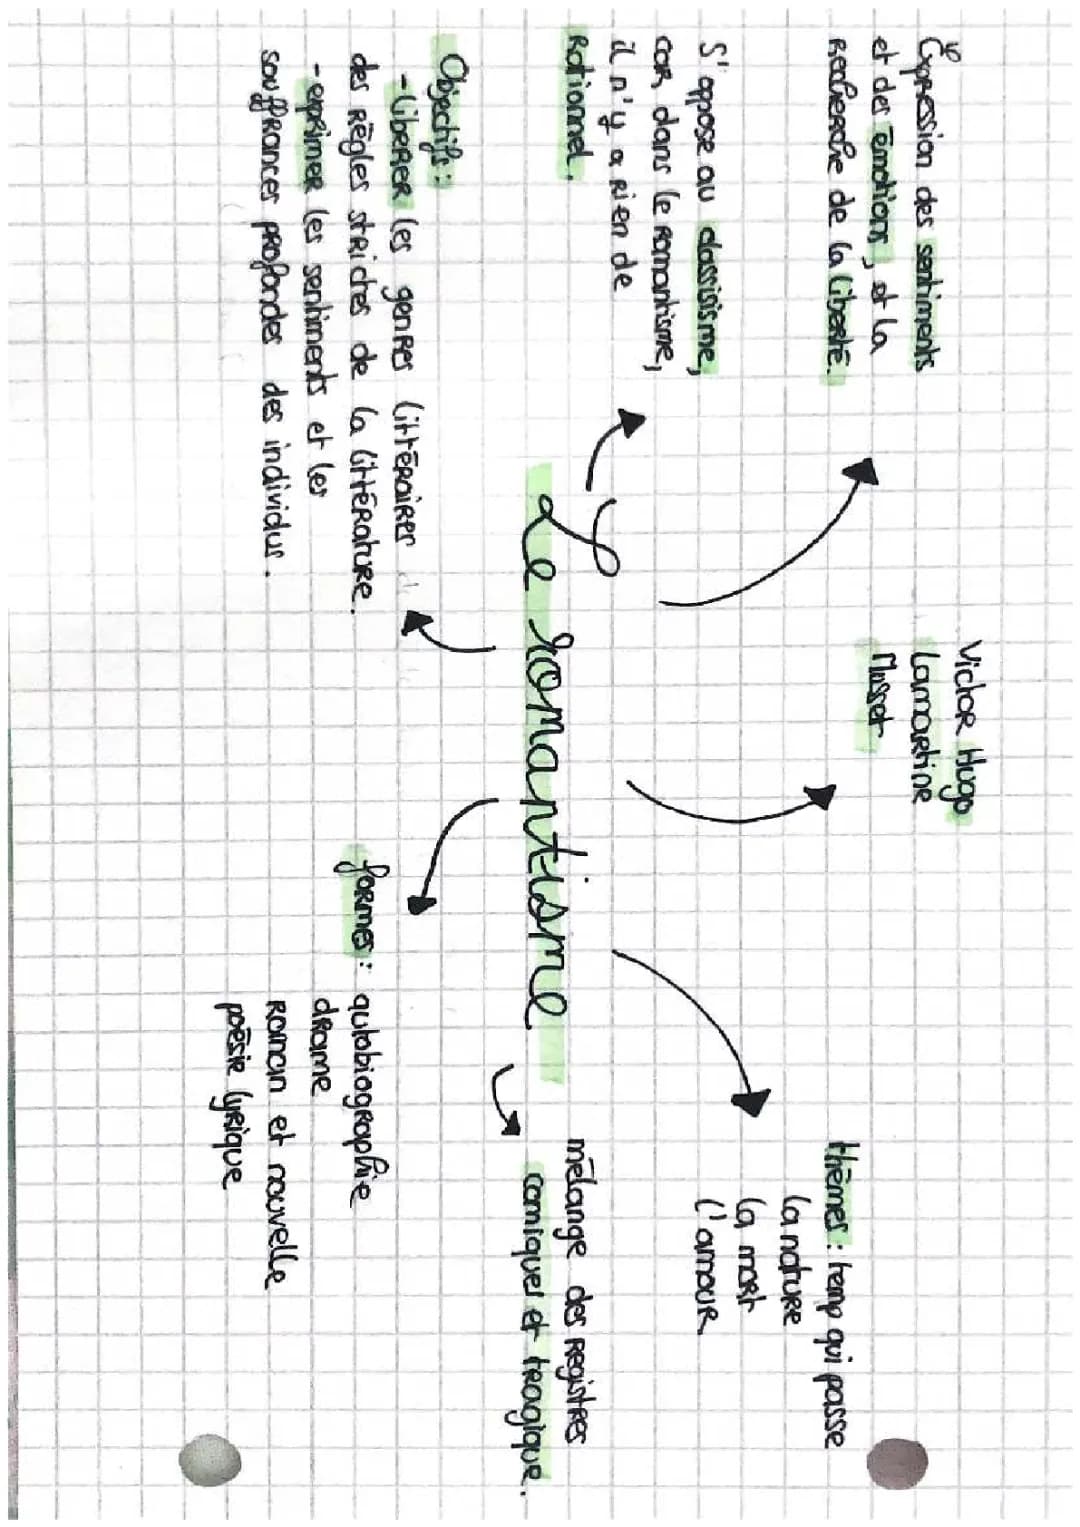 Expression des sentiments
et des émotions, et la
Recherche de la liberté.
Victor Hugo
Lamartine
Musset
thèmes : temp qui passe
la nature
la mort
l'amour
S'oppose au classisisme,
car, dans le romantisme,
il n'y a rien de
Rationnel.
Le romantisme
mélange des registres
comiques et tragique.
Objectifs :
- libérer les genres littéraires
des règles strictes de la littérature.
- exprimer les sentiments et les
souffrances profondes des individus.
formes : autobiographie
drame
roman et nouvelle
poésie lyrique